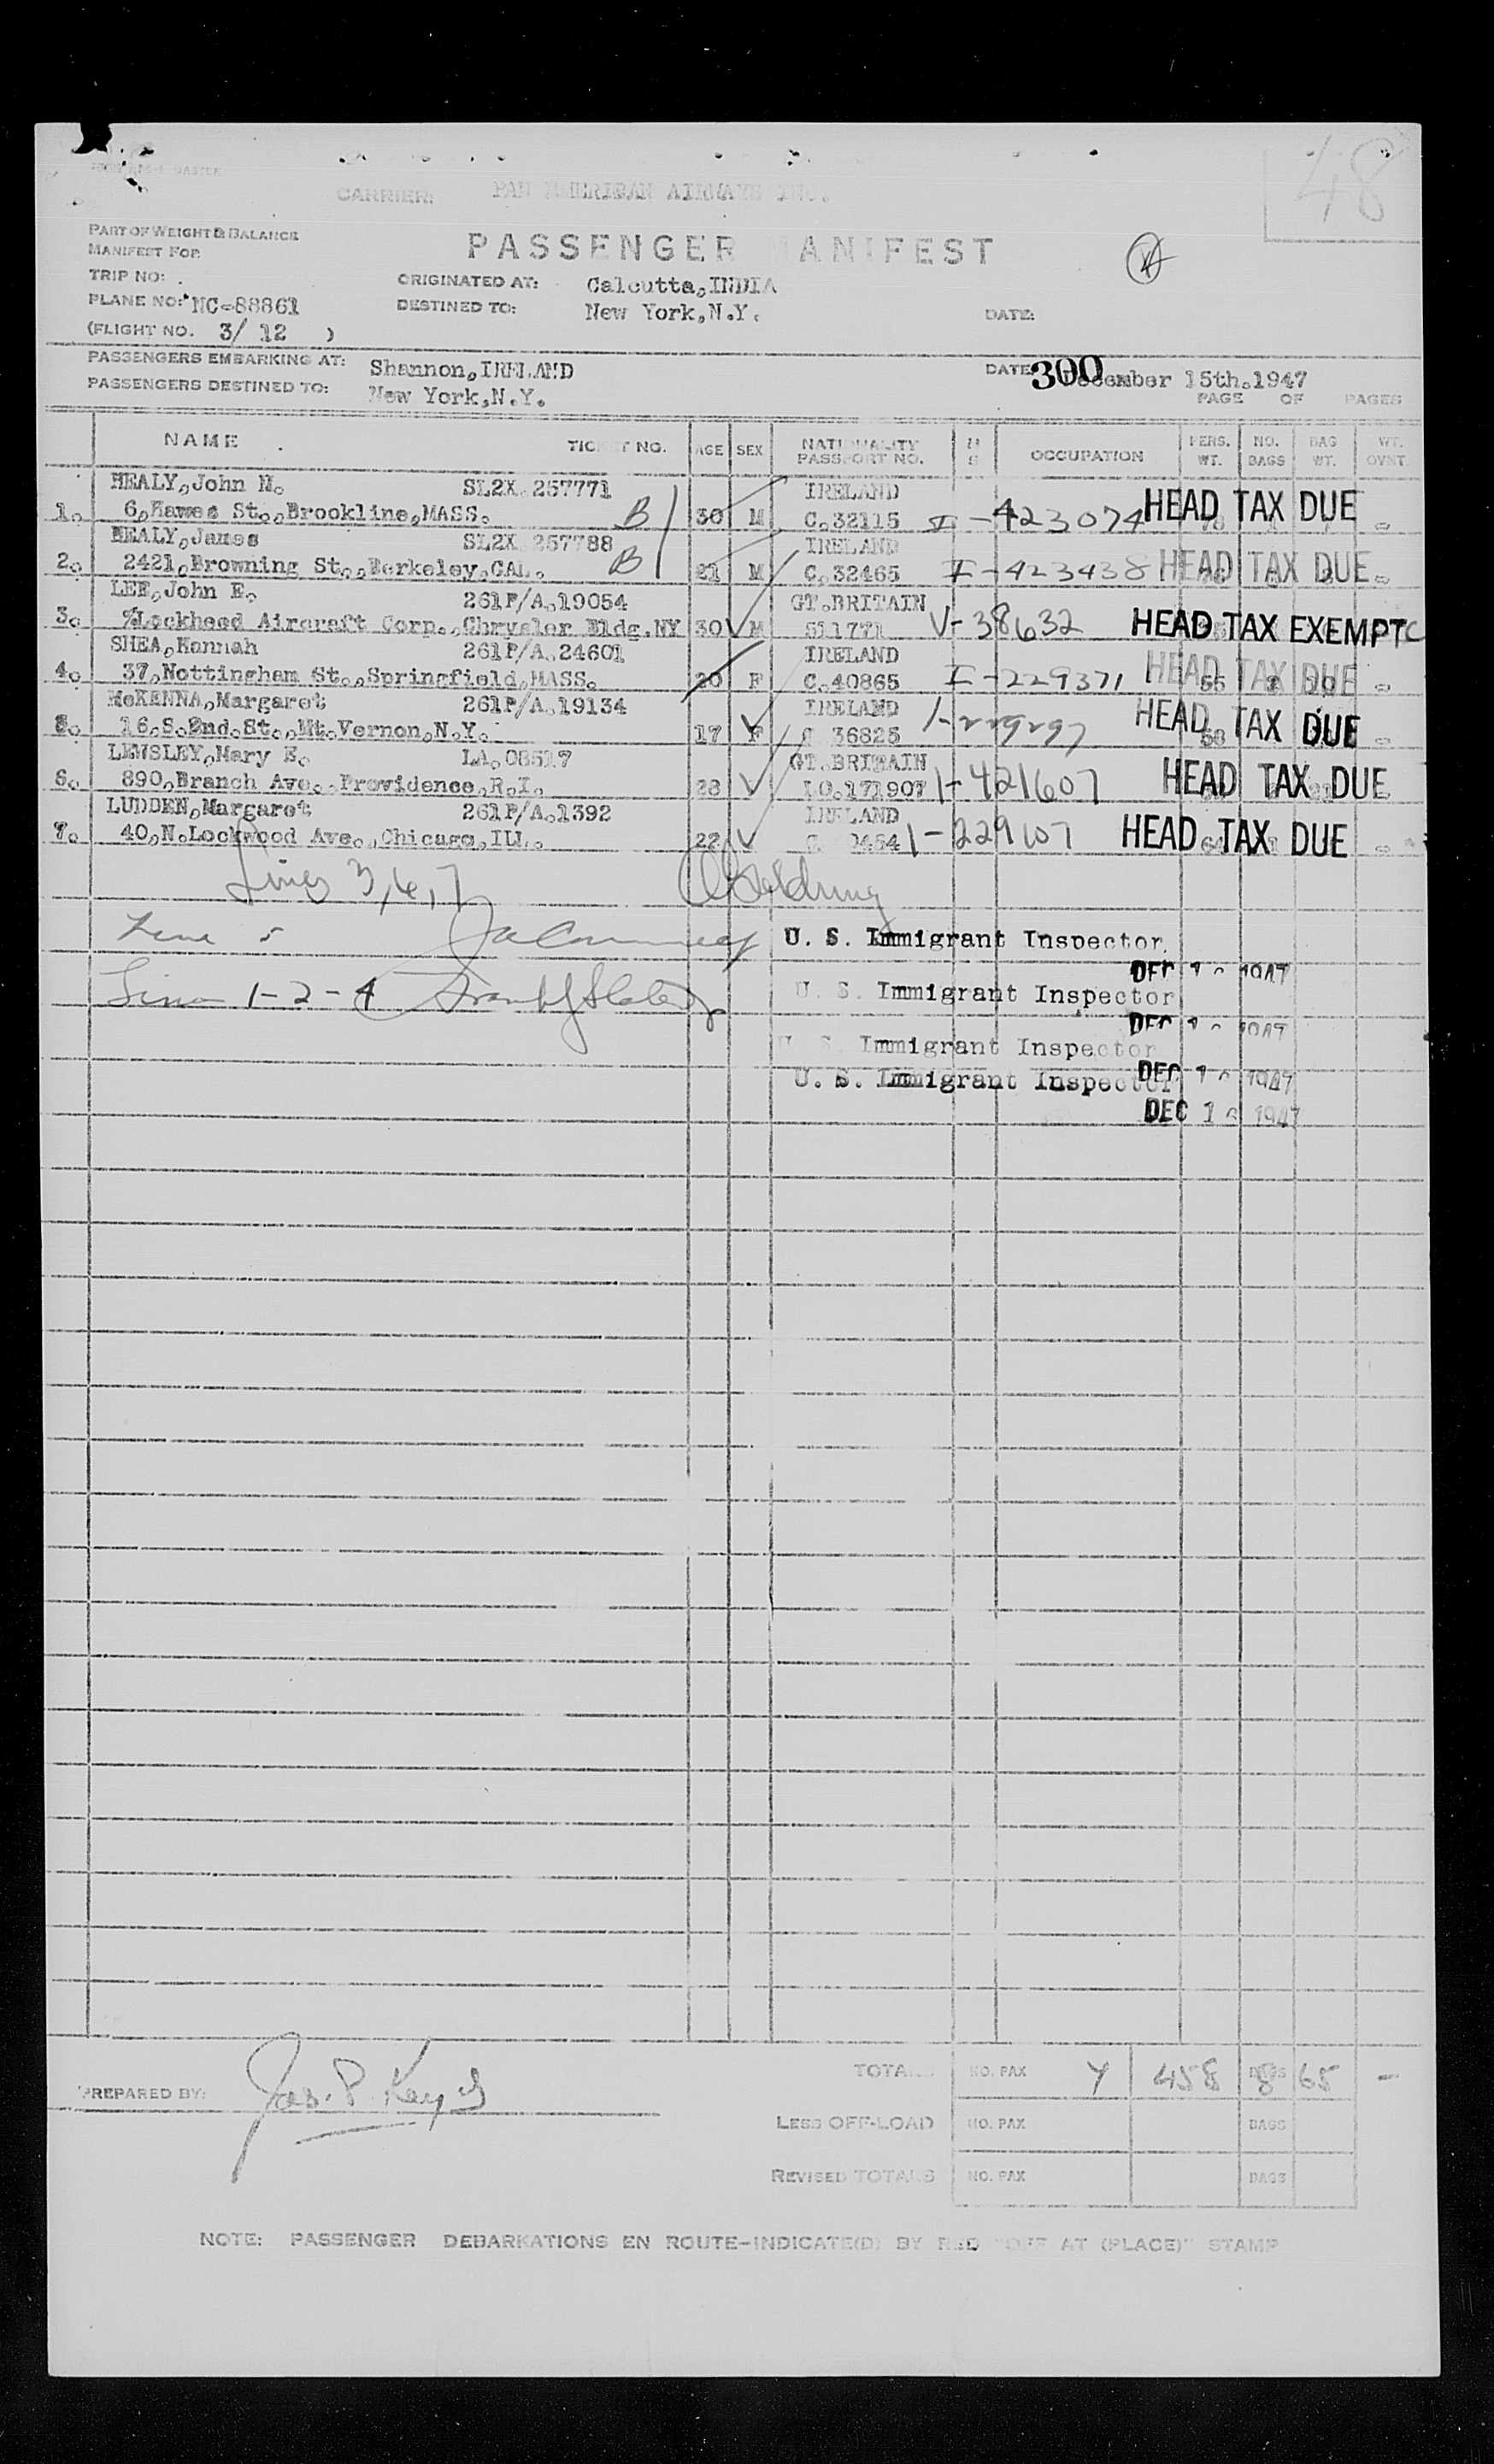 48
CARRIER: PAN AMERICAN AIRWAYS INC.
PART OF WEIGHT & BALANCE
MANIFEST FOR
PASSENGER MANIFEST
TRIP NO:
ORIGINATED AT: Calcutta, INDIA
PLANE NO: NC-88861
DESTINED TO: New York, N.Y.
DATE:
(FLIGHT NO. 3/ 12 )
PASSENGERS EMBARKING AT: Shannon, IRELAND
DATE 300 December 15th. 1947
PASSENGERS DESTINED TO: New York, N.Y.
PAGE OF PAGES
NAME TICKET NO. AGE SEX NATIONALITY PASSPORT NO. M S OCCUPATION PERS. WT. NO. BAGS BAG WT. WT. OVNT
HEALY, John N. SL2X 257771 IRELAND
1. 6, Hawes St., Brookline, MASS. B 30 M C.32115 I-423074 HEAD TAX DUE
HEALY, James SL2X 257788 IRELAND
2. 2421, Browning St., Berkeley, CAL. B 21 M C.32465 I-423438 HEAD TAX DUE
LEE, John E. 261P/A.19054 GT.BRITAIN
3. %Lockheed Aircraft Corp., Chrysler Bldg. NY 30 M 511771 V-38632 HEAD TAX EXEMPT C
SHEA, Hannah 261P/A.24601 IRELAND
4. 37, Nottingham St., Springfield, MASS. 20 F C.40865 I-229371 HEAD TAX DUE
McKENNA, Margaret 261P/A.19134 IRELAND
5. 16.S.2nd.St., Mt.Vernon, N.Y. 17 F C 36825 I-229297 HEAD TAX DUE
LENSLEY, Mary E. LA.08517 GT.BRITAIN
6. 890, Branch Ave., Providence, R.I. 28 LO.171907 I-421607 HEAD TAX DUE
LUDDEN, Margaret 261P/A.1392 IRELAND
7. 40, N.Lockwood Ave., Chicago, ILL. 22 I-229107 HEAD TAX DUE
Lines 3, 6, 7
Line 5 U. S. Immigrant Inspector
DEC 16 1947
Lines 1-2-4 Frank J Slater U. S. Immigrant Inspector
DEC 16 1947
U. S. Immigrant Inspector
DEC 16 1947
U. S. Immigrant Inspector
DEC 16 1947
TOTALS NO. PAX 7 458 BAGS 8 65 -
PREPARED BY: Jas. P. Keyes
LESS OFF-LOAD NO. PAX BAGS
REVISED TOTALS NO. PAX BAGS
NOTE: PASSENGER DEBARKATIONS EN ROUTE-INDICATE(D) BY RED "OFF AT (PLACE)" STAMP